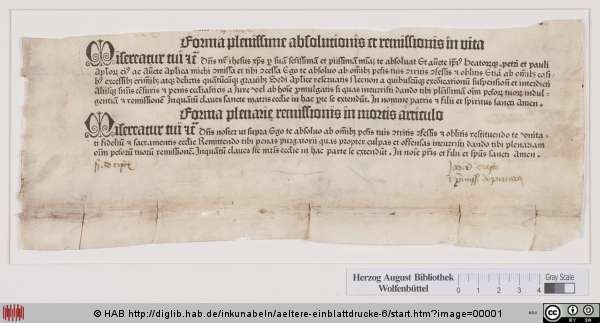 Forma plenissime absolutionis et remissionis in vita
Misereatur tui ꝛc̄ Dn̄s nr̄ ihesus xp̄s ꝑ suā sctissimā et piissimā mīaꝫ te absoluat Et auctē ip̄iꝰ Beatorumqꝫ petri et pauli
apl̓oꝝ eiꝰ ac auctē aplica michi ꝯmissa et tibi ꝯcessa Ego te absoluo ab om̄ibꝫ pctis tuis ꝯtritis ꝯfessis et oblitis Etiā ab om̄ibꝫ casi
bꝰ excessibꝫ criminibꝫ atqꝫ delictis quātūcūqꝫ grauibꝫ Sedi aplice reseruatis Necnon a quibuscūqꝫ excōicationū suspension et interdicti
Alijsqꝫ sniis censuris et penis ecclesiasticis a Jure vel ab hoīe ꝓmulgatis si quas incurristi dando tibi plenissimā oīm pctoꝝ tuoꝝ indul-
gentiā et remissionē Inquātū claues sancte matris ecclie in hac pte se extendūt. In nomine patris et filii et spiritus sancti Amen.
Forma plenarie remissionis in mortis articulo
Misereatur tui ꝛc̄ Dn̄s noster vt supra Ego te absoluo ab om̄ibꝫ pctis tuis ꝯtritis ꝯfessis et oblitis restituendo te vnita-
ti fidelium et sacramentis ecclie Remittendo tibi penas purgatorii quas propter culpas et offensas incurristi dando tibi plenariam
oīm pctoꝝ tuoꝝ remissionē. Inquātū claues scē mr̄is ecclie in hac parte se extendūt. In noīe pr̄is et filii et spūs sancti Amen.
Herzog August Bibliothek
Wolfenbüttel
0 1 2 3 4 5 Gray Scale
© HAB http://diglib.hab.de/inkunabeln/aeltere-einblattdrucke-6/start.htm?image=00001
CC BY SA